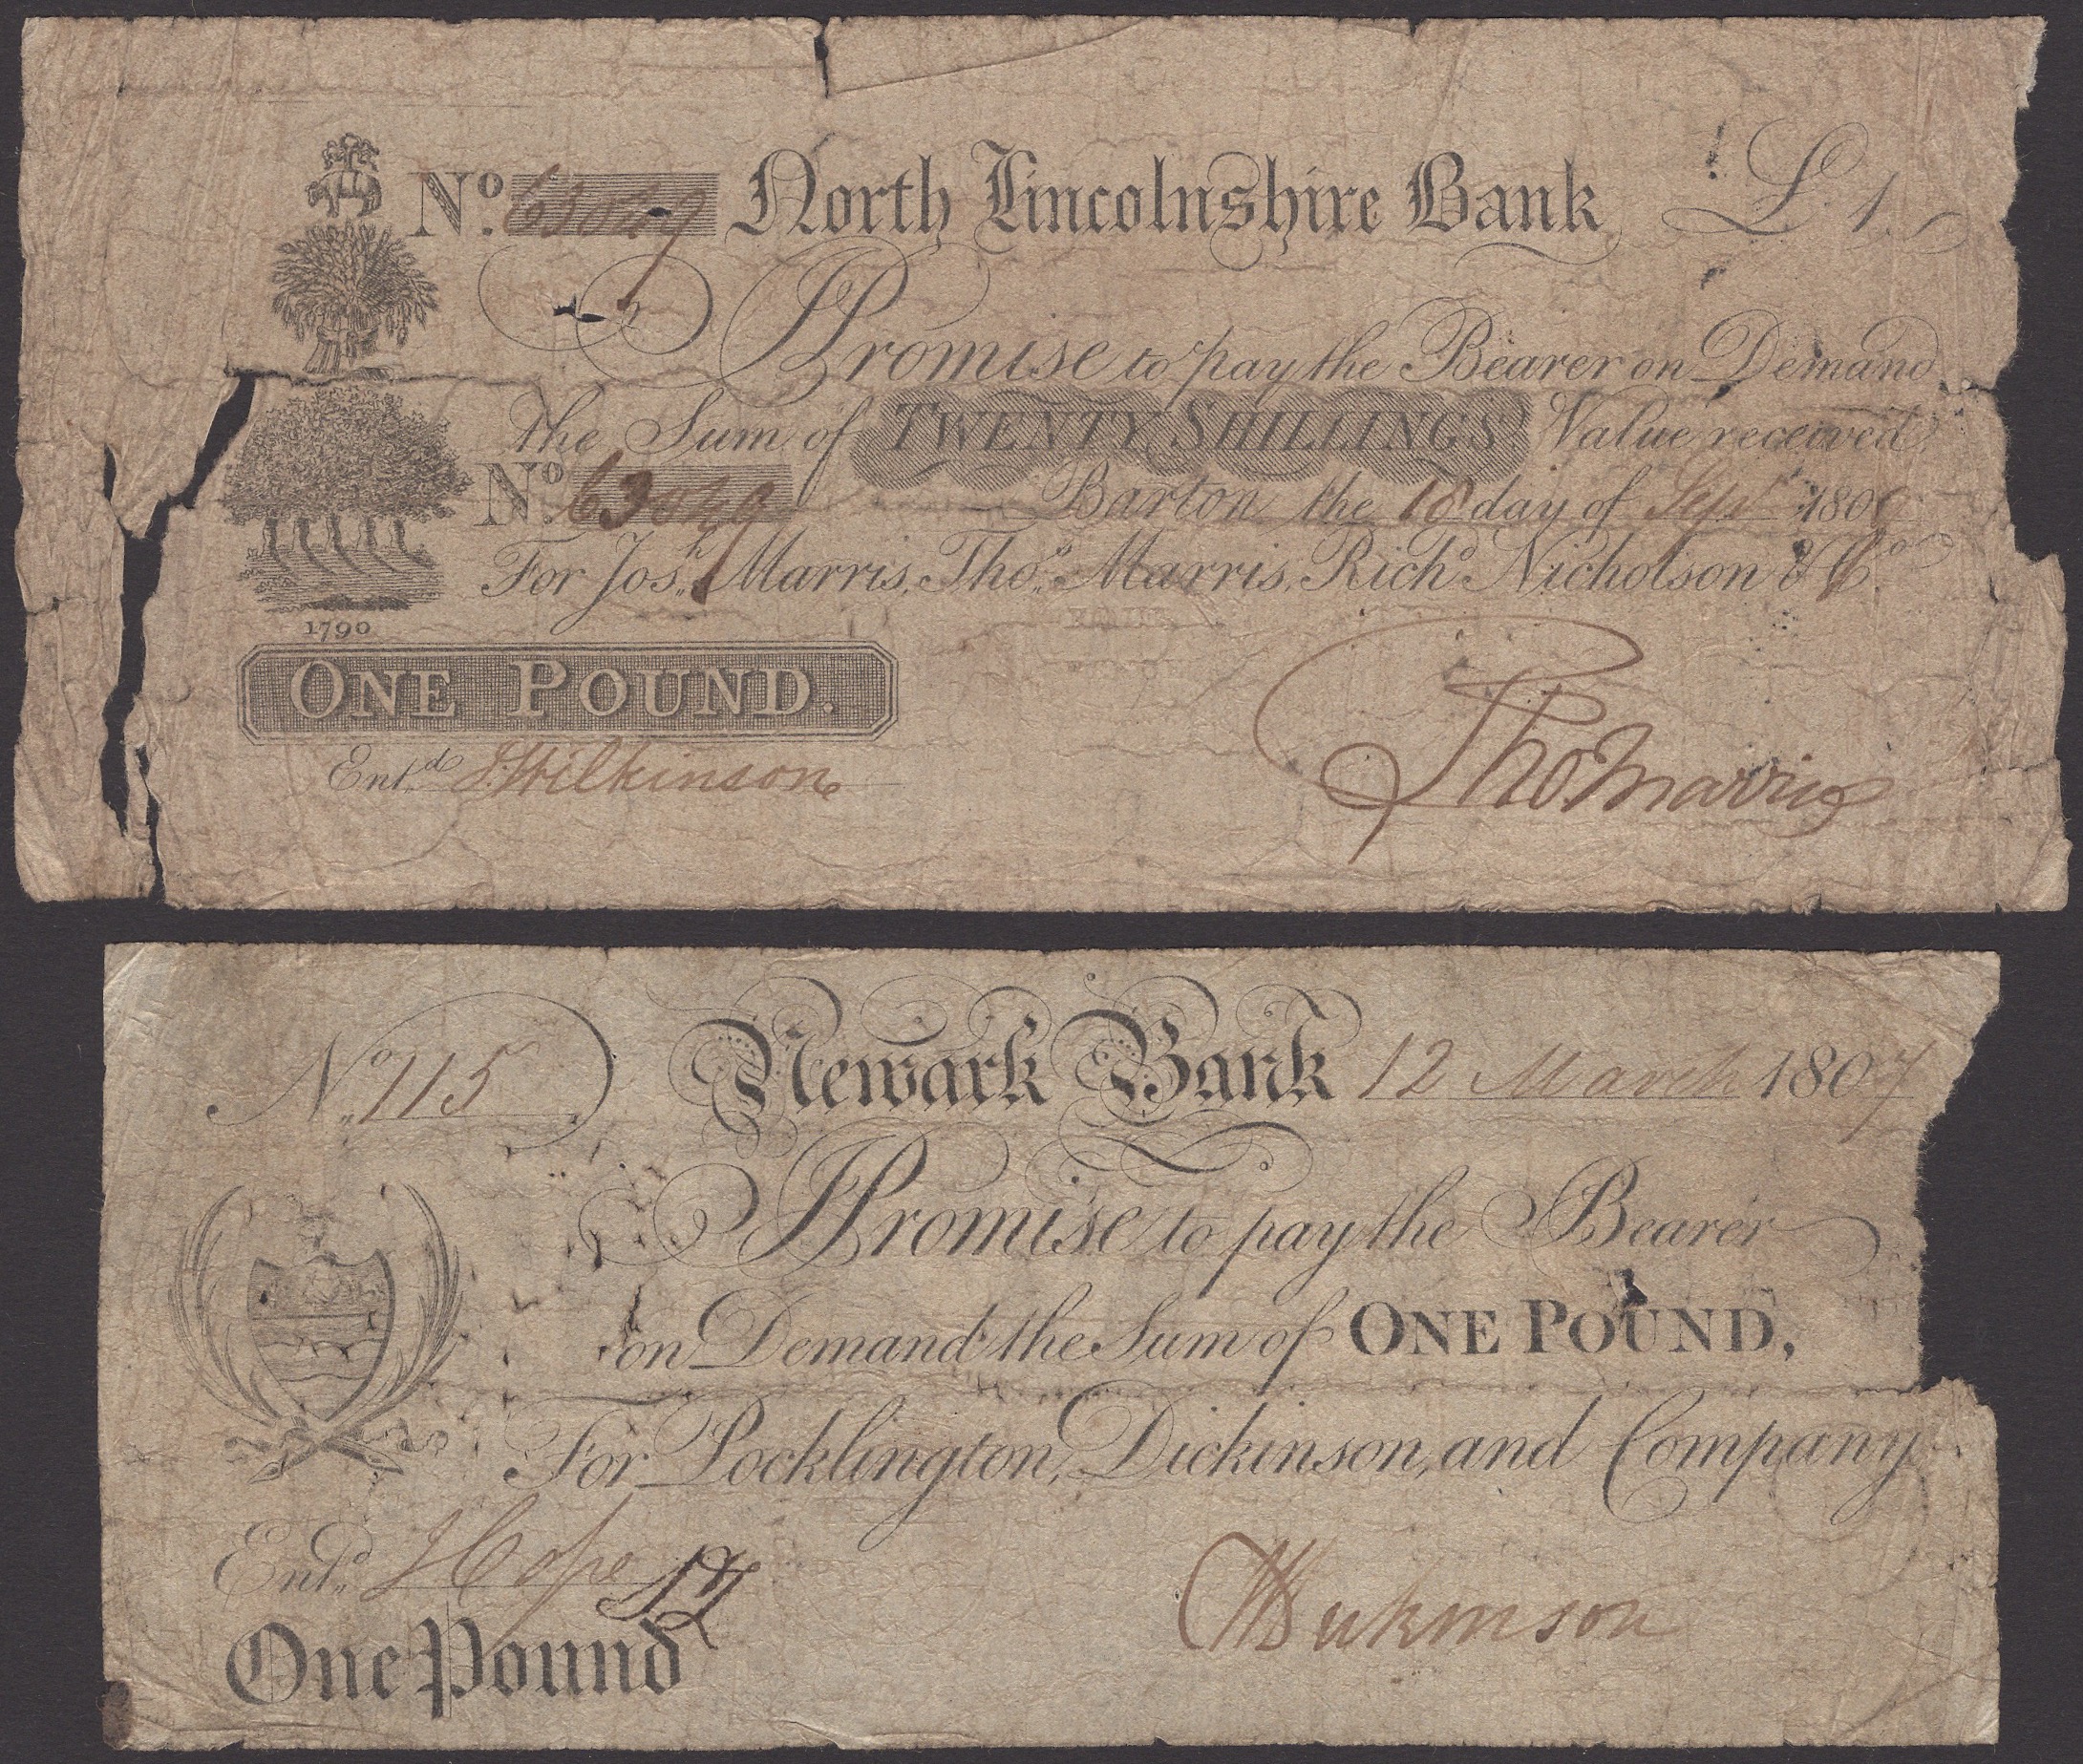 No. 63049 North Lincolnshire Bank £.1.
I Promise to pay the Bearer on Demand
the Sum of TWENTY SHILLINGS Value received
No. 63049 Barton the 18 day of Sept 180
For Josh. Marris, Thos. Marris, Richd. Nicholson & Co.
1790
ONE POUND.
Entd. J. Wilkinson
Tho. Marris
No. 115 Newark Bank 12 March 1807
I Promise to pay the Bearer
on Demand the Sum of ONE POUND,
For Pocklington, Dickinson, and Company
Entd. J Cope
One Pound
Dickinson